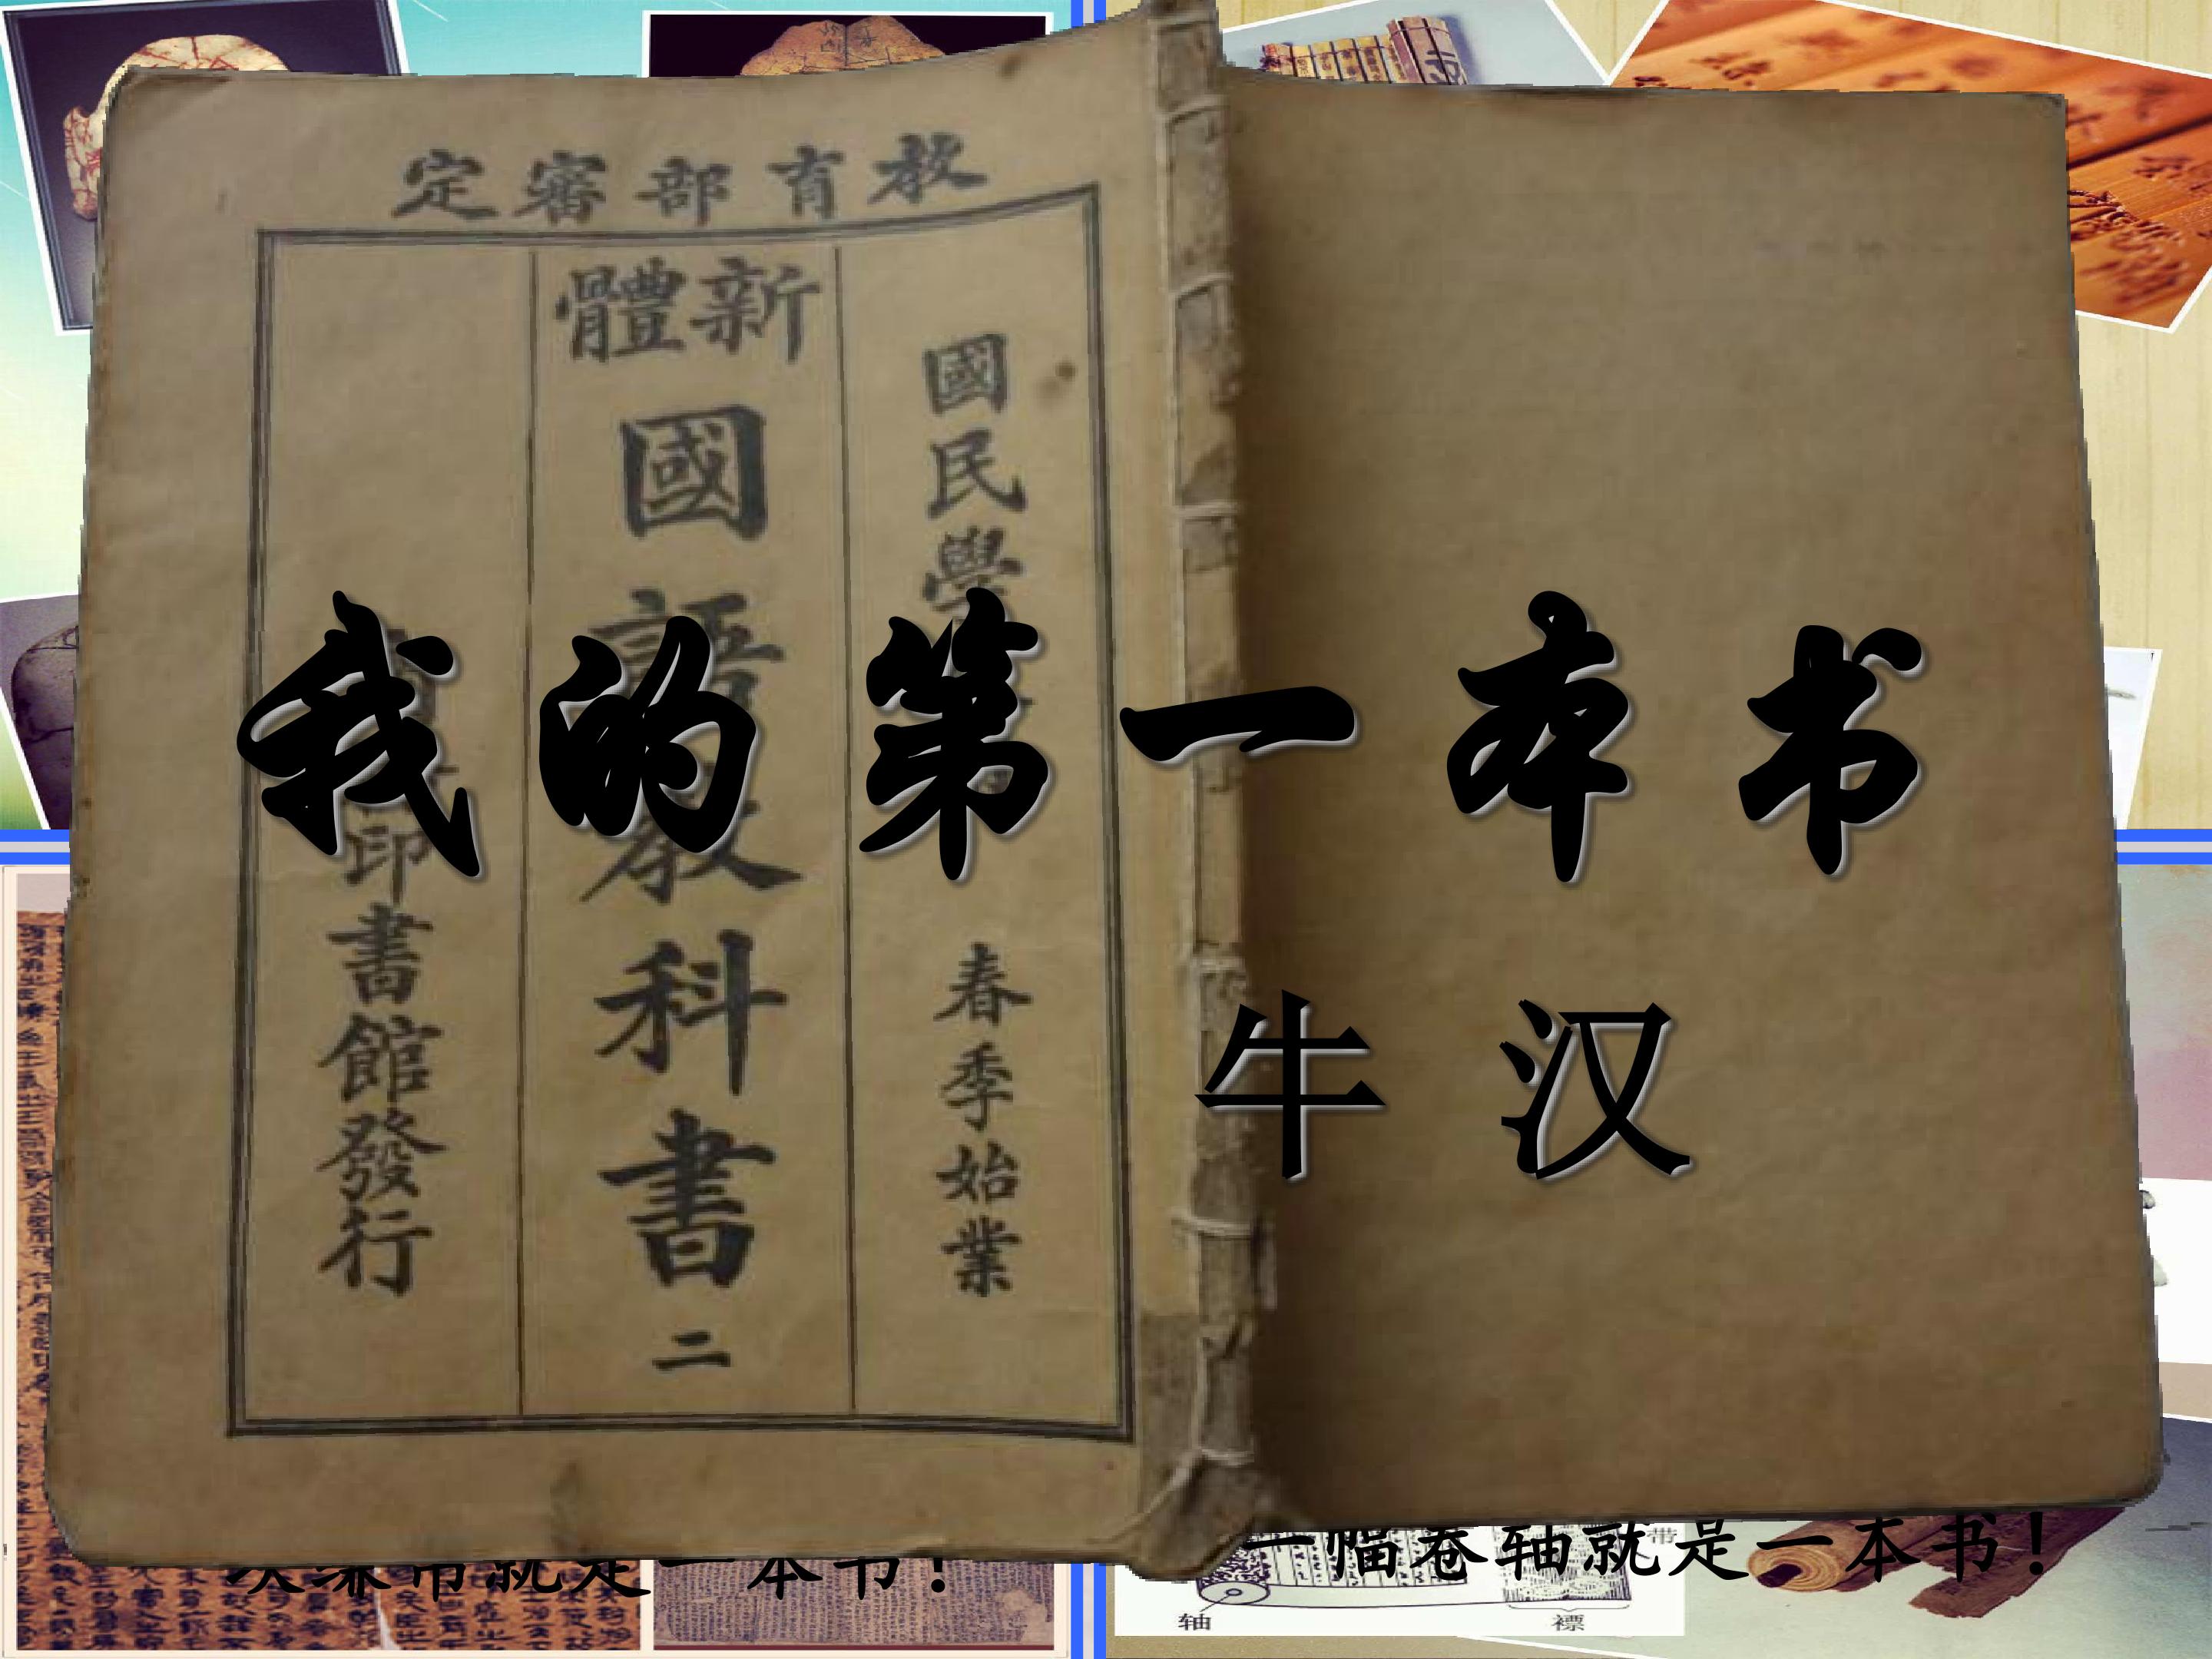 教育部審定
國民學
春季始業
新體
國語教科書 二
印書館發行
我的第一本书
牛汉
就是一本书！
一幅卷轴就是一本书！
带
轴
褾